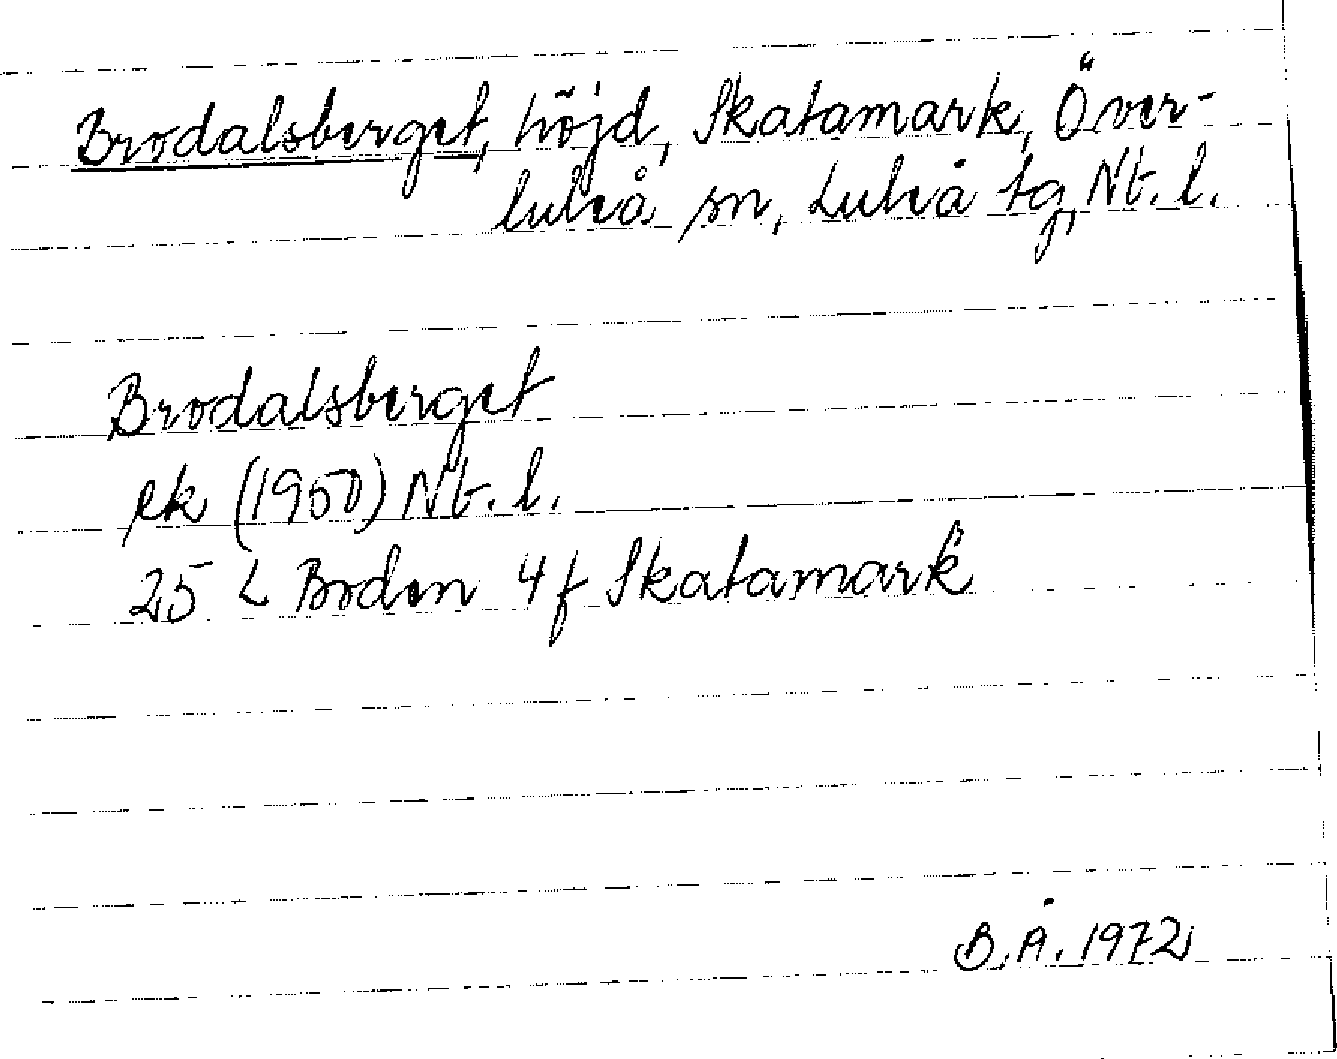 Brodalsberget, höjd, Skatamark, Över-
luleå sn, Luleå tg, Nt. l.
Brodalsberget
ek (1950) Nt. l.
25 L Boden 4 f Skatamark
B. Å. 1972